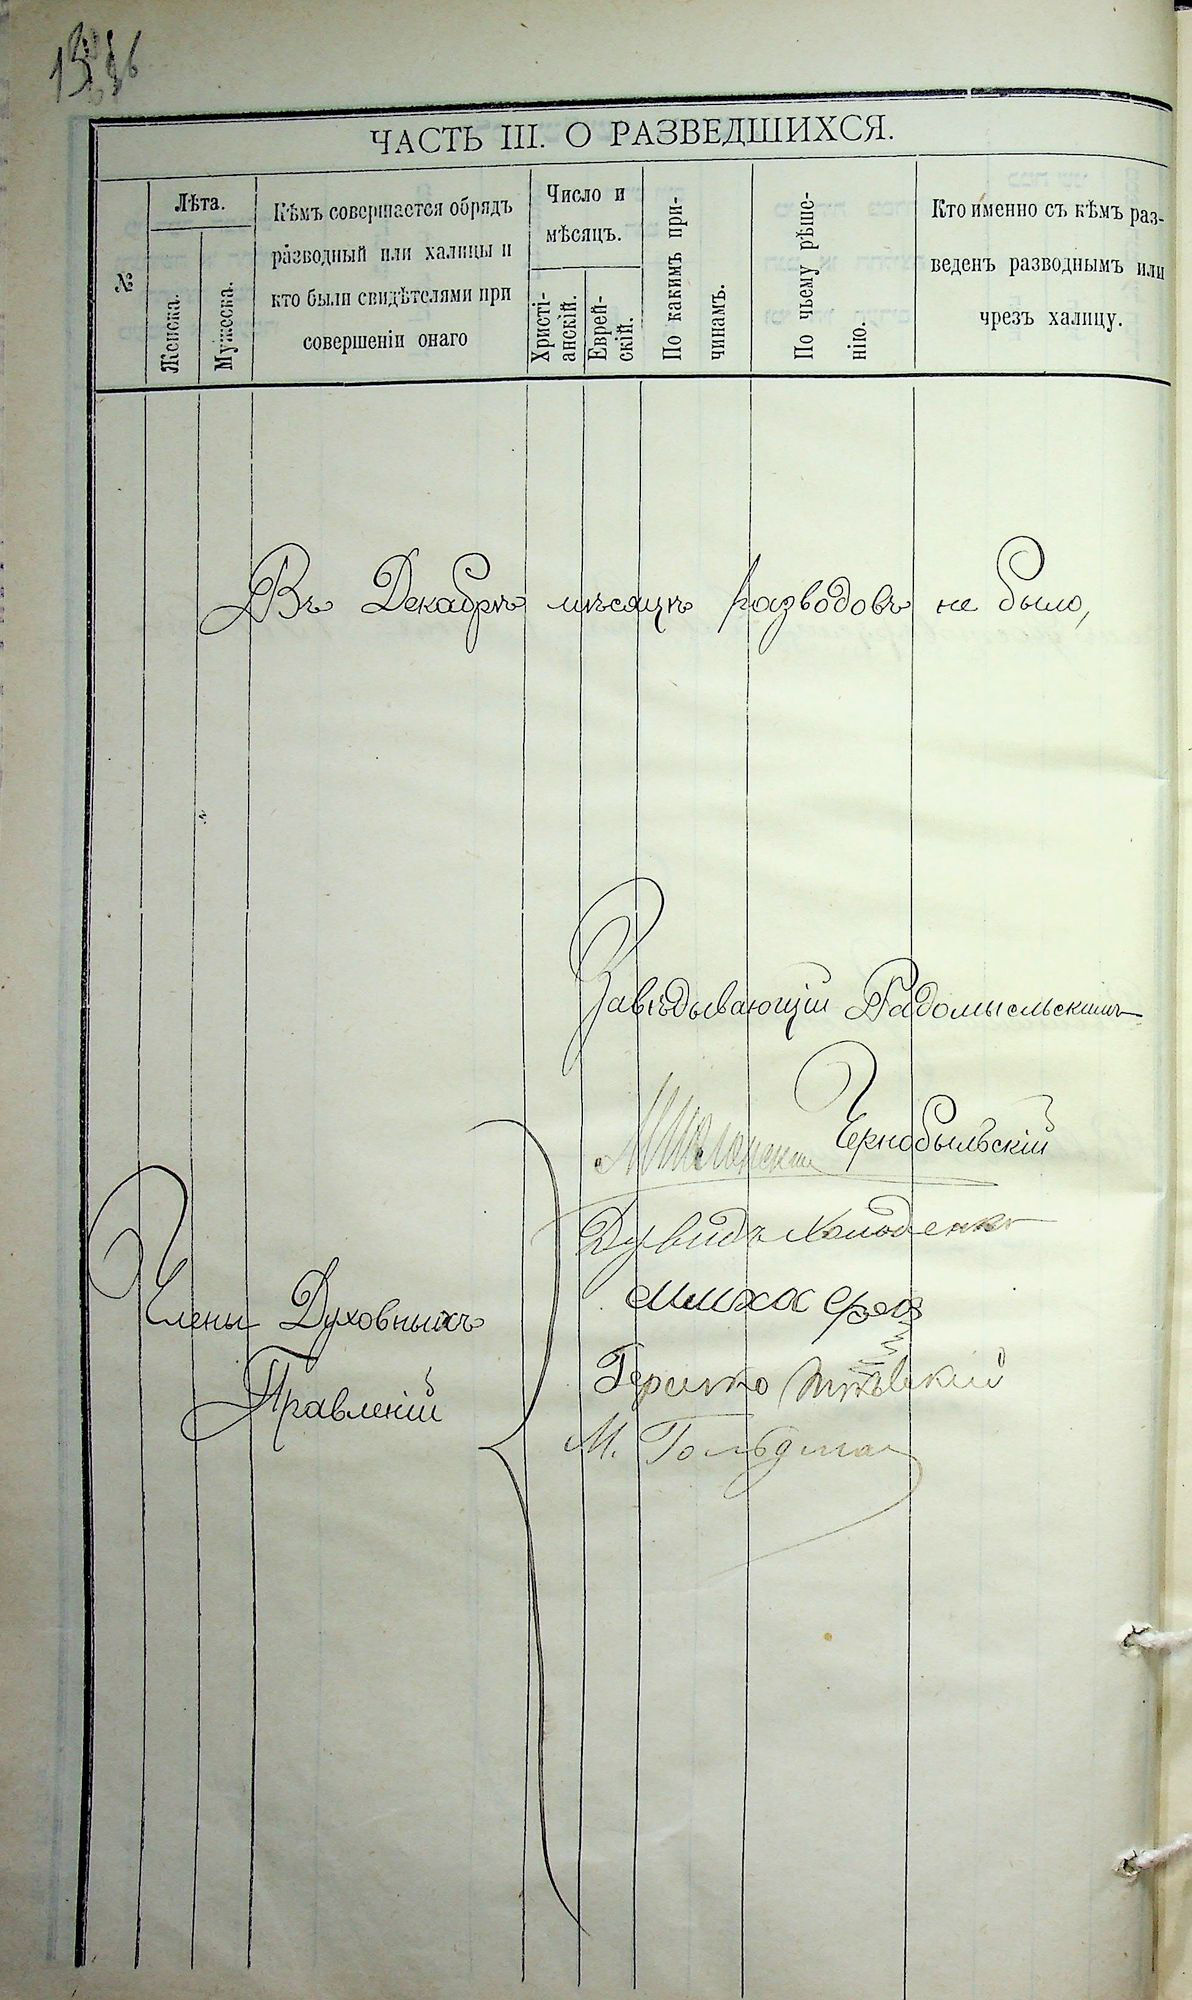 ЧАСТЬ III. О РАЗВЕДШИХСЯ.
№
Лѣта.
Женска.
Мужеска.
Кѣмъ совершается обрядъ
разводный или халицы и
кто были свидѣтелями при
совершеніи онаго
Число и
мѣсяцъ.
Христі-
анскій.
Еврей-
скій.
По какимъ при-
чинамъ.
По чьему рѣше-
нію.
Кто именно съ кѣмъ раз-
веденъ разводнымъ или
чрезъ халицу.
Въ Декабрѣ мѣсяцѣ разводовъ не было,
Завѣдывающій Радомысльскимъ
Чернобыльскій
Члены Духовныхъ
Правленій
Дувидъ Холоденко
Гершко
М. Гольдман